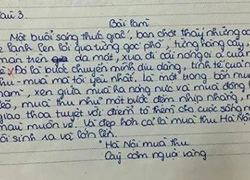 âu 3.
Bài làm
Một buổi sáng thức giấc, bạn chợt thấy những cơ
e lạnh len lỏi qua từng góc phố, từng hàng cây
man trên da mát, xua đi cái nóng oi ả cuối
Đó là bước chuyển mình dịu dàng, tinh tế của m
thu - mùa mà tôi yêu nhất. Là một trong bốn mù
năm, xen giữa mùa hạ nóng nực và mùa đông
lẽo, mùa thu như một bước đệm nhịp nhàng,
giao thoa tuyệt vời điểm tô thêm cho cuộc sống
màu muôn vẻ. Và đẹp hơn cả là mùa thu Hà Nội
ôi sinh ra và lớn lên.
Hà Nội mùa thu
Cây cơm nguội vàng